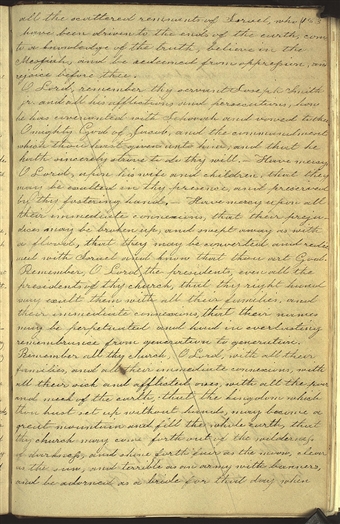 all the scattered remnants of Israel, who
have been driven to the ends of the earth, com
to a knowledge of the truth, believe in the
Messiah, and be redeemed from oppression, and
rejoice before thee.
O Lord, remember thy servant Joseph Smith
jr. and all his afflictions and persecutions, how
he has covenanted with Jehovah and vowed to thee
O mighty God of Jacob, and the commandment
which thou hast given unto him, and that he
hath sincerely strove to do thy will. — Have mercy,
O Lord, upon his wife and children, that they
may be exalted in thy presence, and preserved
by thy fostering hand, — Have mercy upon all
their immediate connexions, that their preju-
dices may be broken up, and swept away as with
a flood, that they may be converted and redee
med with Israel and know that thou art God.
Remember, O Lord, the presidents, even all the
presidents of thy church, that thy right hand
may exalt them with all their families, and
their immediate connexions, that their names
may be perpetuated and had in everlasting
remembrance from generation to generation.
Remember all thy church, O Lord, with all their
families, and all their immediate connexions, with
all their sick and afflicted ones, with all the poor
and meek of the earth, that the kingdom which
thou hast set up without hands, may become a
great mountain and fill the whole earth, that
thy church may come forth out of the wilderness
of darkness, and shine forth fair as the moon, clear
as the sun, and terrible as an army with banners,
and be adorned as a bride for that day when